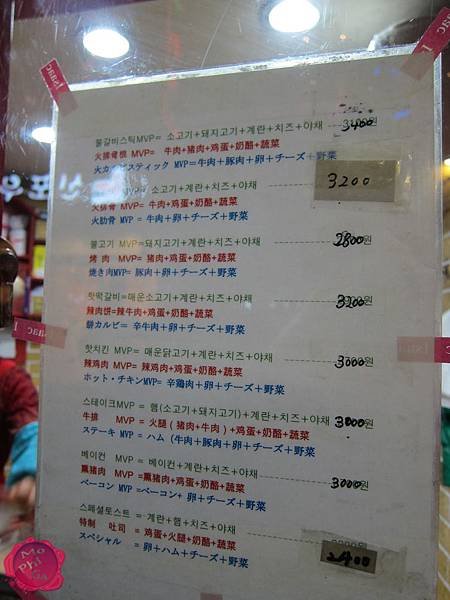 Isaac
Isaac
불갈비스틱MVP= 소고기+돼지고기+계란+치즈+야채 3400원
火排骨根 MVP= 牛肉+猪肉+鸡蛋+奶酪+蔬菜
火カルビスティック MVP=牛肉+豚肉+卵+チーズ+野菜
MVP= 소고기+계란+치즈+야채 3200
火排骨 MVP= 牛肉+鸡蛋+奶酪+蔬菜
火肋骨 MVP = 牛肉+卵+チーズ+野菜
불고기 MVP=돼지고기+계란+치즈+야채 2800원
烤 肉 MVP= 猪肉+鸡蛋+奶酪+蔬菜
焼き肉MVP= 豚肉+卵+チーズ+野菜
핫떡갈비=매운소고기+계란+치즈+야채 3200원
辣肉饼=辣牛肉+鸡蛋+奶酪+蔬菜
餅カルビ= 辛牛肉+卵+チーズ+野菜
Isaac
핫치킨 MVP= 매운닭고기+계란+치즈+야채 3000원
辣鸡肉 MVP= 辣鸡肉+鸡蛋+奶酪+蔬菜
ホット・チキンMVP= 辛鶏肉+卵+チーズ+野菜
스테이크MVP = 햄(소고기+돼지고기)+계란+치즈+야채 3000원
牛排 MVP = 火腿(猪肉+牛肉)+鸡蛋+奶酪+蔬菜
ステーキ MVP = ハム(牛肉+豚肉+卵+チーズ+野菜
베이컨 MVP = 베이컨+계란+치즈+야채 3000원
熏猪肉 MVP=熏猪肉+鸡蛋+奶酪+蔬菜
ベーコン MVP =ベーコン+ 卵+チーズ+野菜
스페셜토스트 = 계란+햄+치즈+야채 2400
特制 吐司 = 鸡蛋+火腿+奶酪+蔬菜
スペシャル = 卵+ハム+チーズ+野菜
Mo
Phi